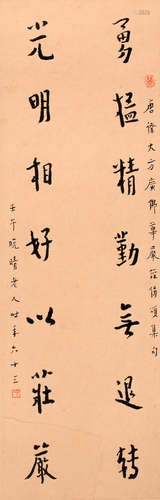 唐譯大方廣佛華嚴經偈頌集句
勇猛精勤無退轉
光明相好以莊嚴
壬午晚晴老人時年六十三